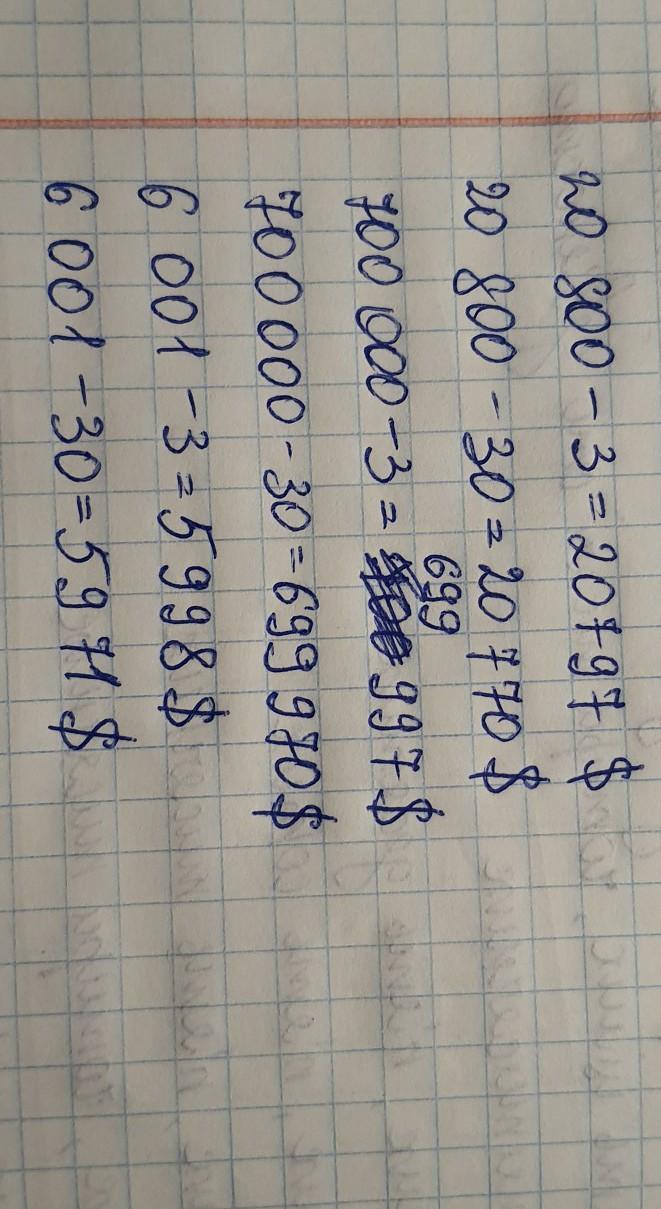 20 800 - 3 = 20 797 $
20 800 - 30 = 20 770 $
700 000 - 3 = 699 997 $
700 000 - 30 = 699 970 $
6 001 - 3 = 5998 $
6 001 - 30 = 5971 $